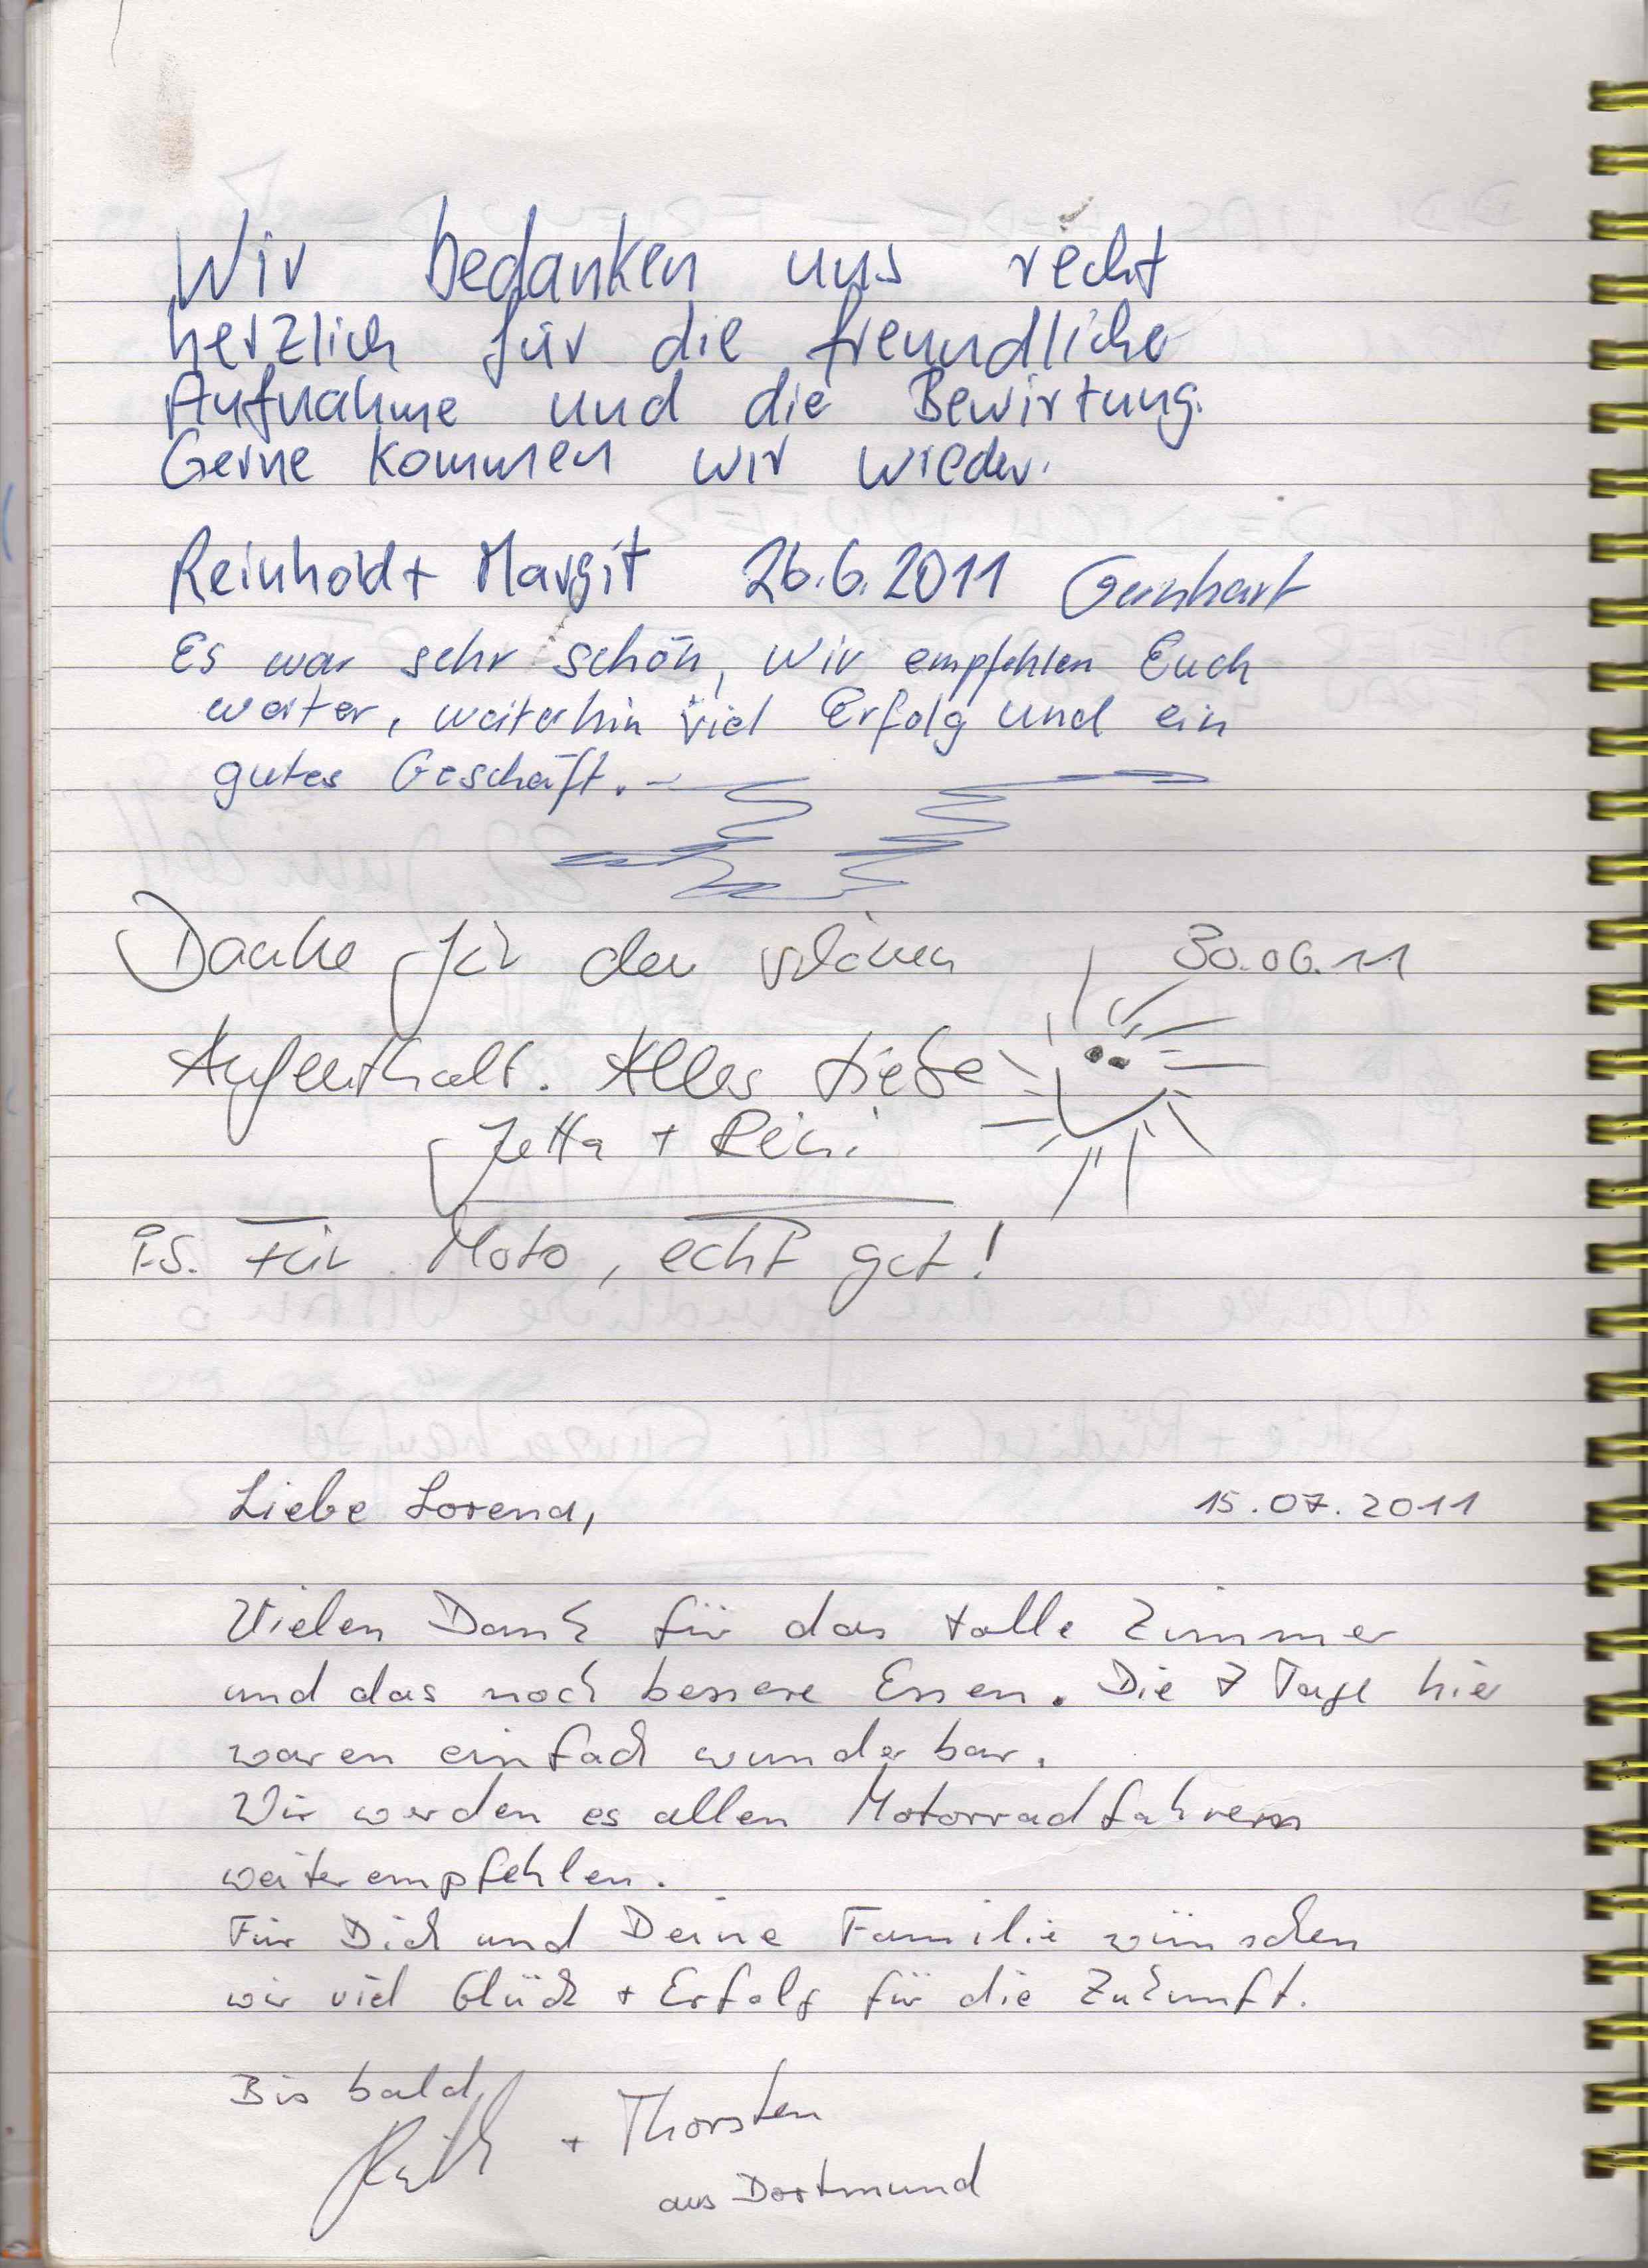 Wir bedanken uns recht
herzlich für die freundliche
Aufnahme und die Bewirtung.
Gerne kommen wir wieder.
Reinhold + Margit 26.6.2011
Es war sehr schön, wir empfehlen Euch
weiter, weiterhin viel Erfolg und ein
gutes Geschäft.
Danke für den schönen 30.06.11
Aufenthalt. Alles Liebe
Jetta + Reini
P.S. Für Moto, echt gut!
Liebe Lorena, 15.07.2011
Vielen Dank für das tolle Zimmer
und das noch bessere Essen. Die 7 Tage hier
waren einfach wunderbar.
Wir werden es allen Motorradfahrern
weiterempfehlen.
Für Dich und Deine Familie wünschen
wir viel Glück + Erfolg für die Zukunft.
Bis bald
+ Thorsten
aus Dortmund